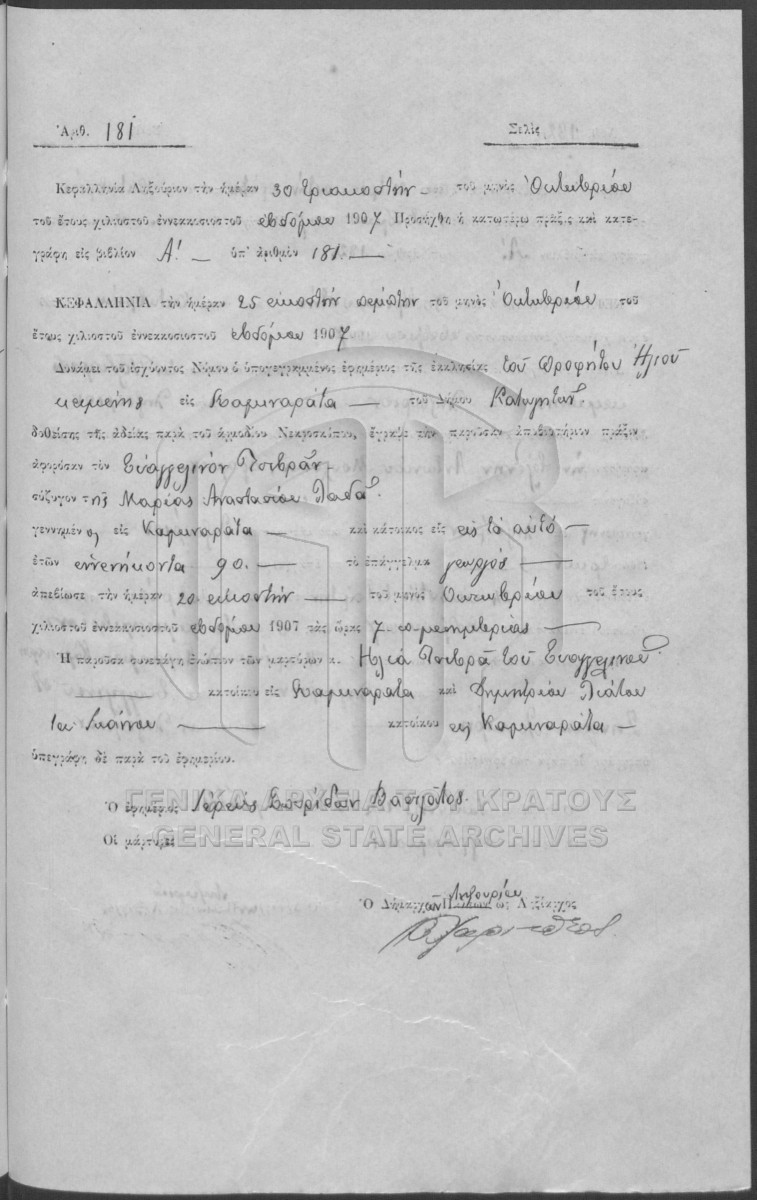 Ἀριθ. 181 Σελὶς
Κεφαλληνία Ληξούριον τὴν ἡμέραν 30 τριακοστὴν τοῦ μηνὸς Ὀκτωβρίου
τοῦ ἔτους χιλιοστοῦ ἐννεακοσιοστοῦ ἑβδόμου 1907 Προσήχθη ἡ κατωτέρω πρᾶξις καὶ κατε-
γράφη εἰς βιβλίον Α! — ὑπ' ἀριθμὸν 181. —
ΚΕΦΑΛΛΗΝΙΑ τὴν ἡμέραν 25 εἰκοστὴν πέμπτην τοῦ μηνὸς Ὀκτωβρίου τοῦ
ἔτους χιλιοστοῦ ἐννεακοσιοστοῦ ἑβδόμου 1907
Δυνάμει τοῦ ἰσχύοντος Νόμου ὁ ὑπογεγραμμένος ἐφημέριος τῆς ἐκκλησίας τοῦ Προφήτου Ἠλιοῦ
κειμένης εἰς Καμιναράτα — τοῦ Δήμου
δοθείσης τῆς ἀδείας παρὰ τοῦ ἁρμοδίου Νεκροσκόπου, ἔγραψε τὴν παροῦσαν ἀποβιωτήριον πρᾶξιν
ἀφορῶσαν τὸν Εὐαγγελινὸν Τσιβρᾶν —
σύζυγον τῆς Μαρίας Ἀναστασίου Λαδᾶ.
γεννημέν ος εἰς Καμιναράτα — καὶ κάτοικος εἰς εἰς τὸ αὐτό —
ἐτῶν ἐννενήκοντα 90. — τὸ ἐπάγγελμα γεωργὸς —
ἀπεβίωσε τὴν ἡμέραν 20 εἰκοστὴν — τοῦ μηνὸς Ὀκτωβρίου τοῦ ἔτους
χιλιοστοῦ ἐννεακοσιοστοῦ ἑβδόμου 1907 τὰς ὥρας 7 π μεσημβρίας —
Ἡ παροῦσα συνετάγη ἐνώπιον τῶν μαρτύρων κ. Ἠλιᾶ Τσιβρᾶ τοῦ Εὐαγγελινοῦ
— κατοίκου εἰς Καμιναράτα καὶ Δημητρίου
Ἰωάννου — κατοίκου εἰς Καμιναράτα —
ὑπεγράφη δὲ παρὰ τοῦ ἐφημερίου.
Ὁ ἐφημέριος Ἱερεὺς Σπυρίδων
ΓΕΝΙΚΑ ΑΡΧΕΙΑ ΤΟΥ ΚΡΑΤΟΥΣ
GENERAL STATE ARCHIVES
Οἱ μάρτυρες
Ληξουρίου
Ὁ Δήμαρχος ὡς Ληξίαρχος